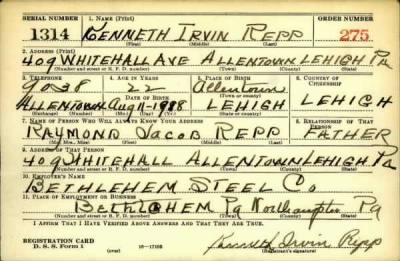 SERIAL NUMBER 1. NAME (Print) ORDER NUMBER
1314 KENNETH IRVIN REPP 275
(First) (Middle) (Last)
2. ADDRESS (Print)
409 WHITEHALL AVE ALLENTOWN LEHIGH PA
(Number and street or R. F. D. number) (Town) (County) (State)
3. TELEPHONE 4. AGE IN YEARS 5. PLACE OF BIRTH 6. COUNTRY OF CITIZENSHIP
9038 22 Allentown
DATE OF BIRTH (Town or county)
ALLENTOWN Aug 11-1918 LEHIGH LEHIGH
(Exchange) (Number) (Mo.) (Day) (Yr.) (State or country)
7. NAME OF PERSON WHO WILL ALWAYS KNOW YOUR ADDRESS 8. RELATIONSHIP OF THAT PERSON
RAYMOND JACOB REPP FATHER
(Mr., Mrs., Miss) (First) (Middle) (Last)
9. ADDRESS OF THAT PERSON
409 WHITEHALL ALLENTOWN LEHIGH Pa
(Number and street or R. F. D. number) (Town) (County) (State)
10. EMPLOYER'S NAME
BETHLEHEM STEEL Co
11. PLACE OF EMPLOYMENT OR BUSINESS
BETHLEHEM Pa Northampton Pa
(Number and street or R. F. D. number) (Town) (County) (State)
I AFFIRM THAT I HAVE VERIFIED ABOVE ANSWERS AND THAT THEY ARE TRUE.
REGISTRATION CARD
D. S. S. Form 1 (over) 16-17105 Kenneth Irvin Repp
(Registrant's signature)